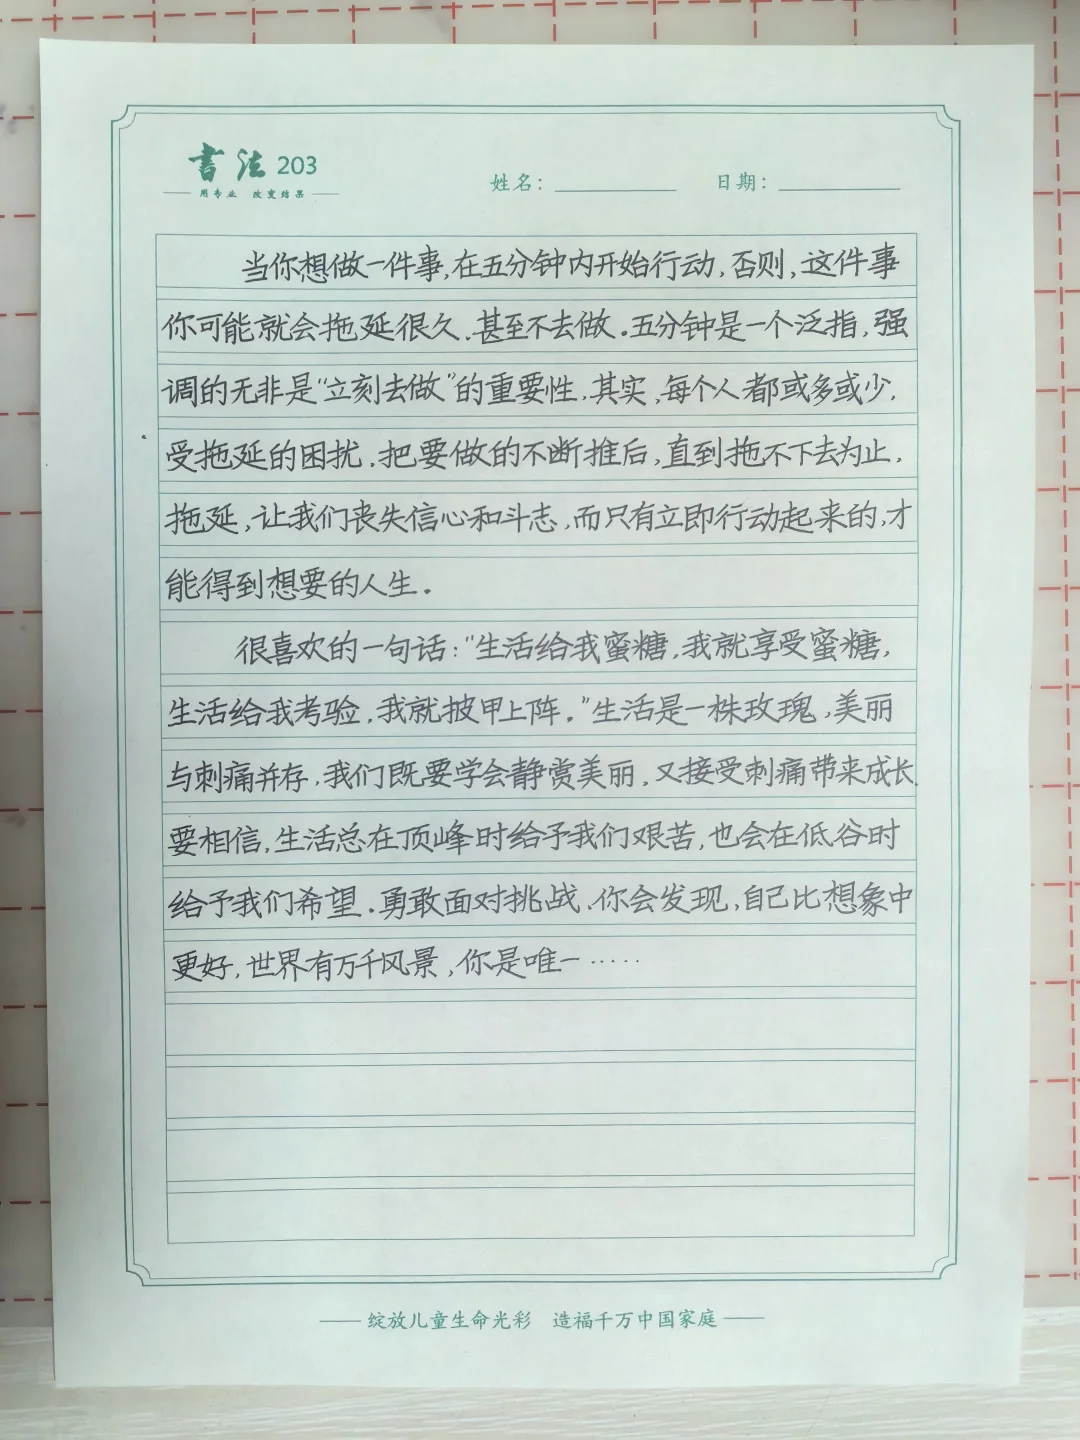 书法 203
用专业 改变结果
姓名：
日期：
当你想做一件事,在五分钟内开始行动,否则,这件事
你可能就会拖延很久.甚至不去做.五分钟是一个泛指,强
调的无非是“立刻去做”的重要性.其实,每个人都或多或少,
受拖延的困扰.把要做的不断推后,直到拖不下去为止,
拖延,让我们丧失信心和斗志,而只有立即行动起来的,才
能得到想要的人生.
很喜欢的一句话:“生活给我蜜糖,我就享受蜜糖,
生活给我考验,我就披甲上阵.”生活是一株玫瑰,美丽
与刺痛并存,我们既要学会静赏美丽,又接受刺痛带来成长.
要相信,生活总在顶峰时给予我们艰苦,也会在低谷时
给予我们希望.勇敢面对挑战、你会发现,自己比想象中
更好,世界有万千风景,你是唯一······
绽放儿童生命光彩 造福千万中国家庭